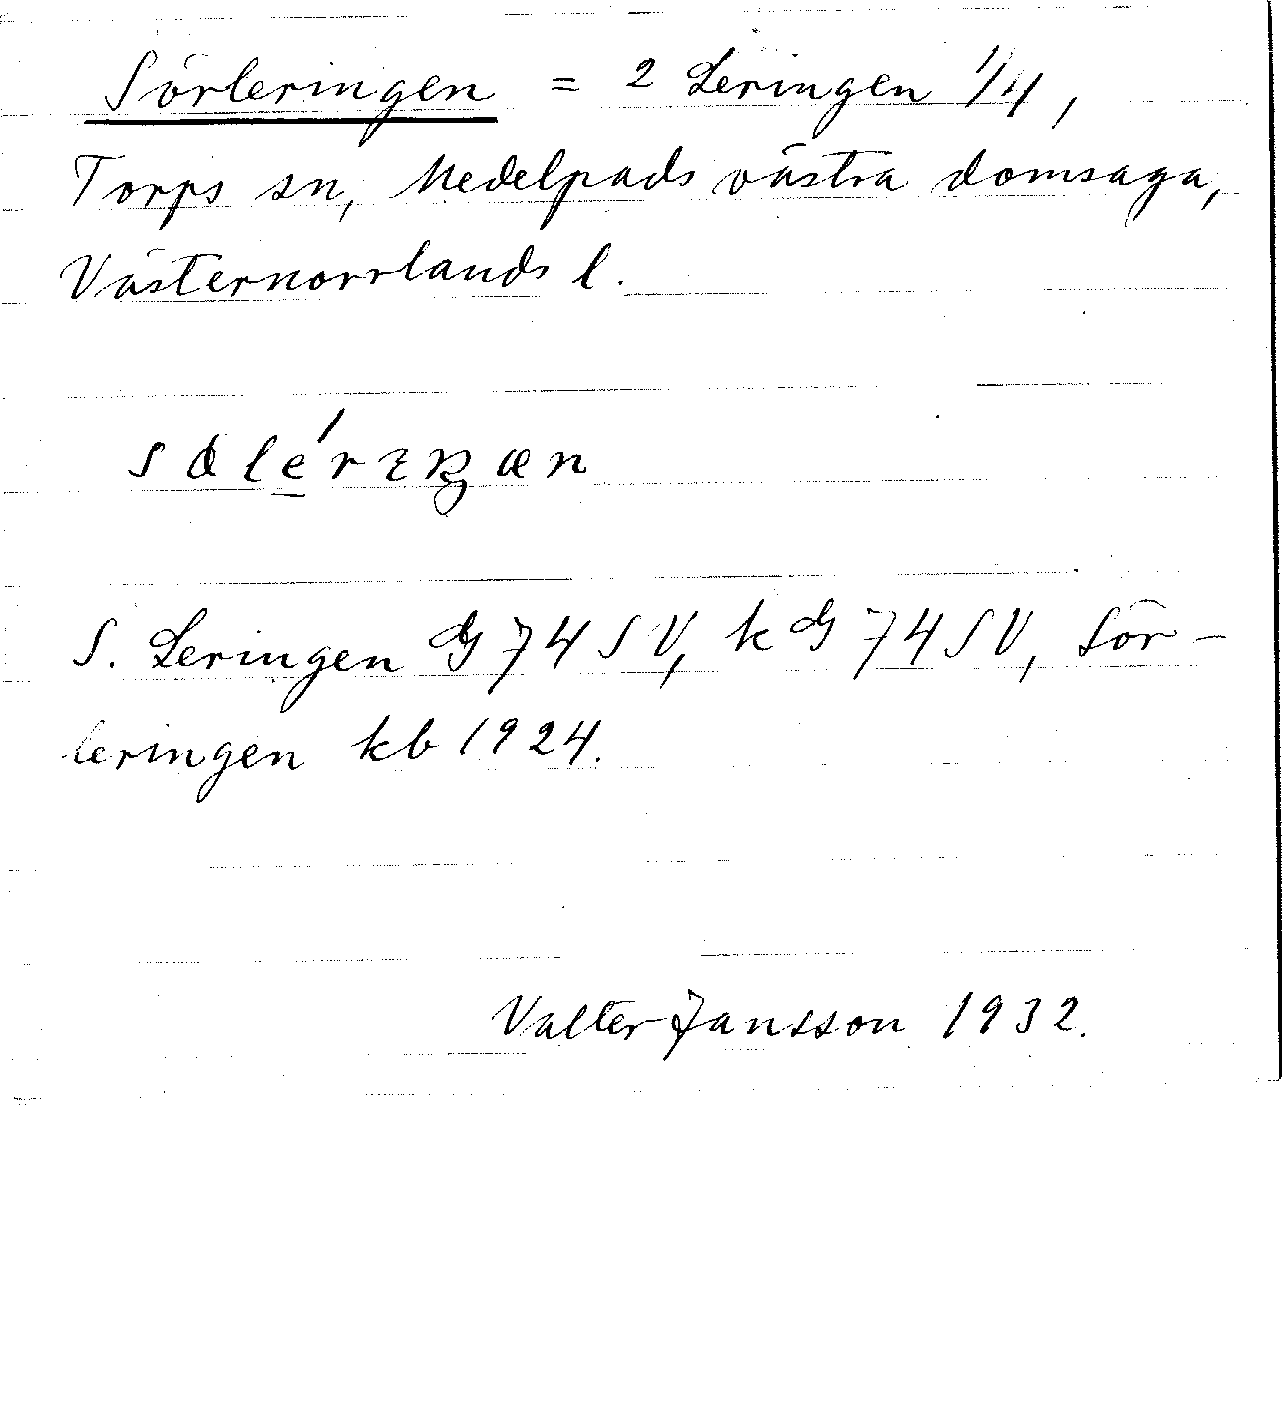 Sörleringen = 2 Leringen 1/4,
Torps sn, Medelpads västra domsaga,
Västernorrlands l.
S. Leringen G 74 SV, k G 74 SV, Sör-
leringen kb 1924.
Valter Jansson 1932.